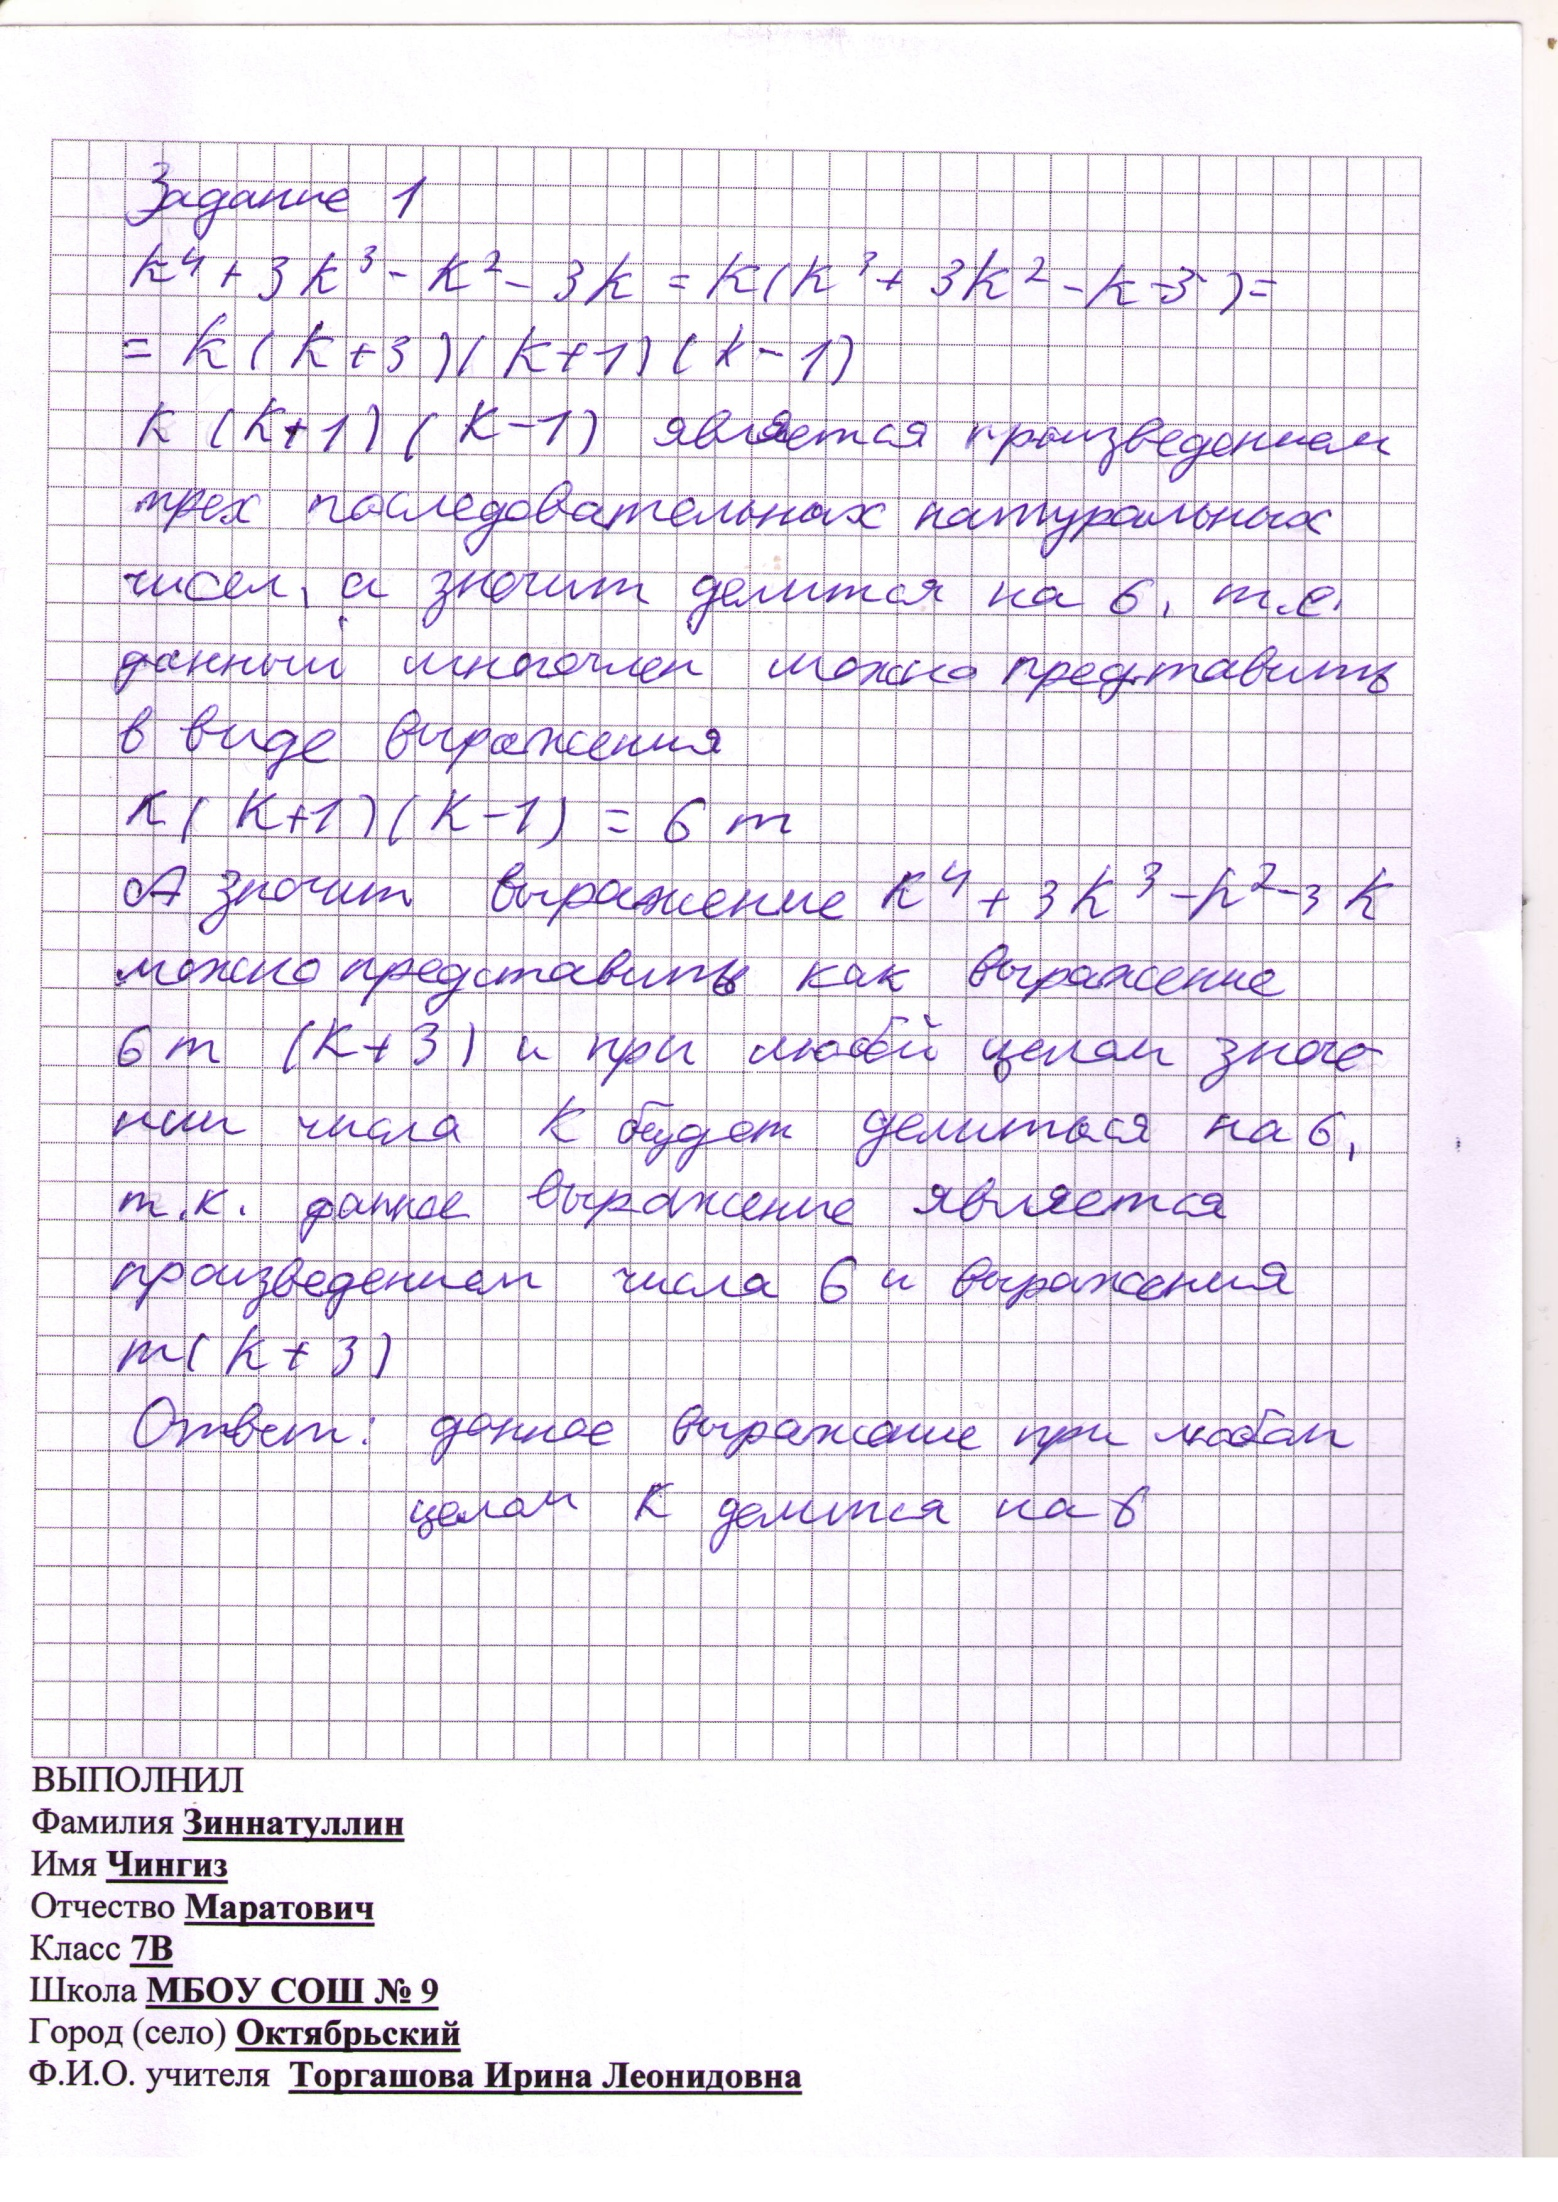 Задание 1
k⁴ + 3k³ - k² - 3k = k(k³ + 3k² - k - 3) =
= k(k+3)(k+1)(k-1)
k(k+1)(k-1) является произведением
трех последовательных натуральных
чисел, а значит делится на 6, т.е.
данный многочлен можно представить
в виде выражения
k(k+1)(k-1) = 6m
А значит выражение k⁴ + 3k³ - k² - 3k
можно представить как выражение
6m (k+3) и при любой целом значе-
нии числа k будет делиться на 6,
т.к. данное выражение является
произведением числа 6 и выражения
m(k+3)
Ответ: данное выражение при любом
целом k делится на 6
ВЫПОЛНИЛ
Фамилия Зиннатуллин
Имя Чингиз
Отчество Маратович
Класс 7В
Школа МБОУ СОШ № 9
Город (село) Октябрьский
Ф.И.О. учителя Торгашова Ирина Леонидовна